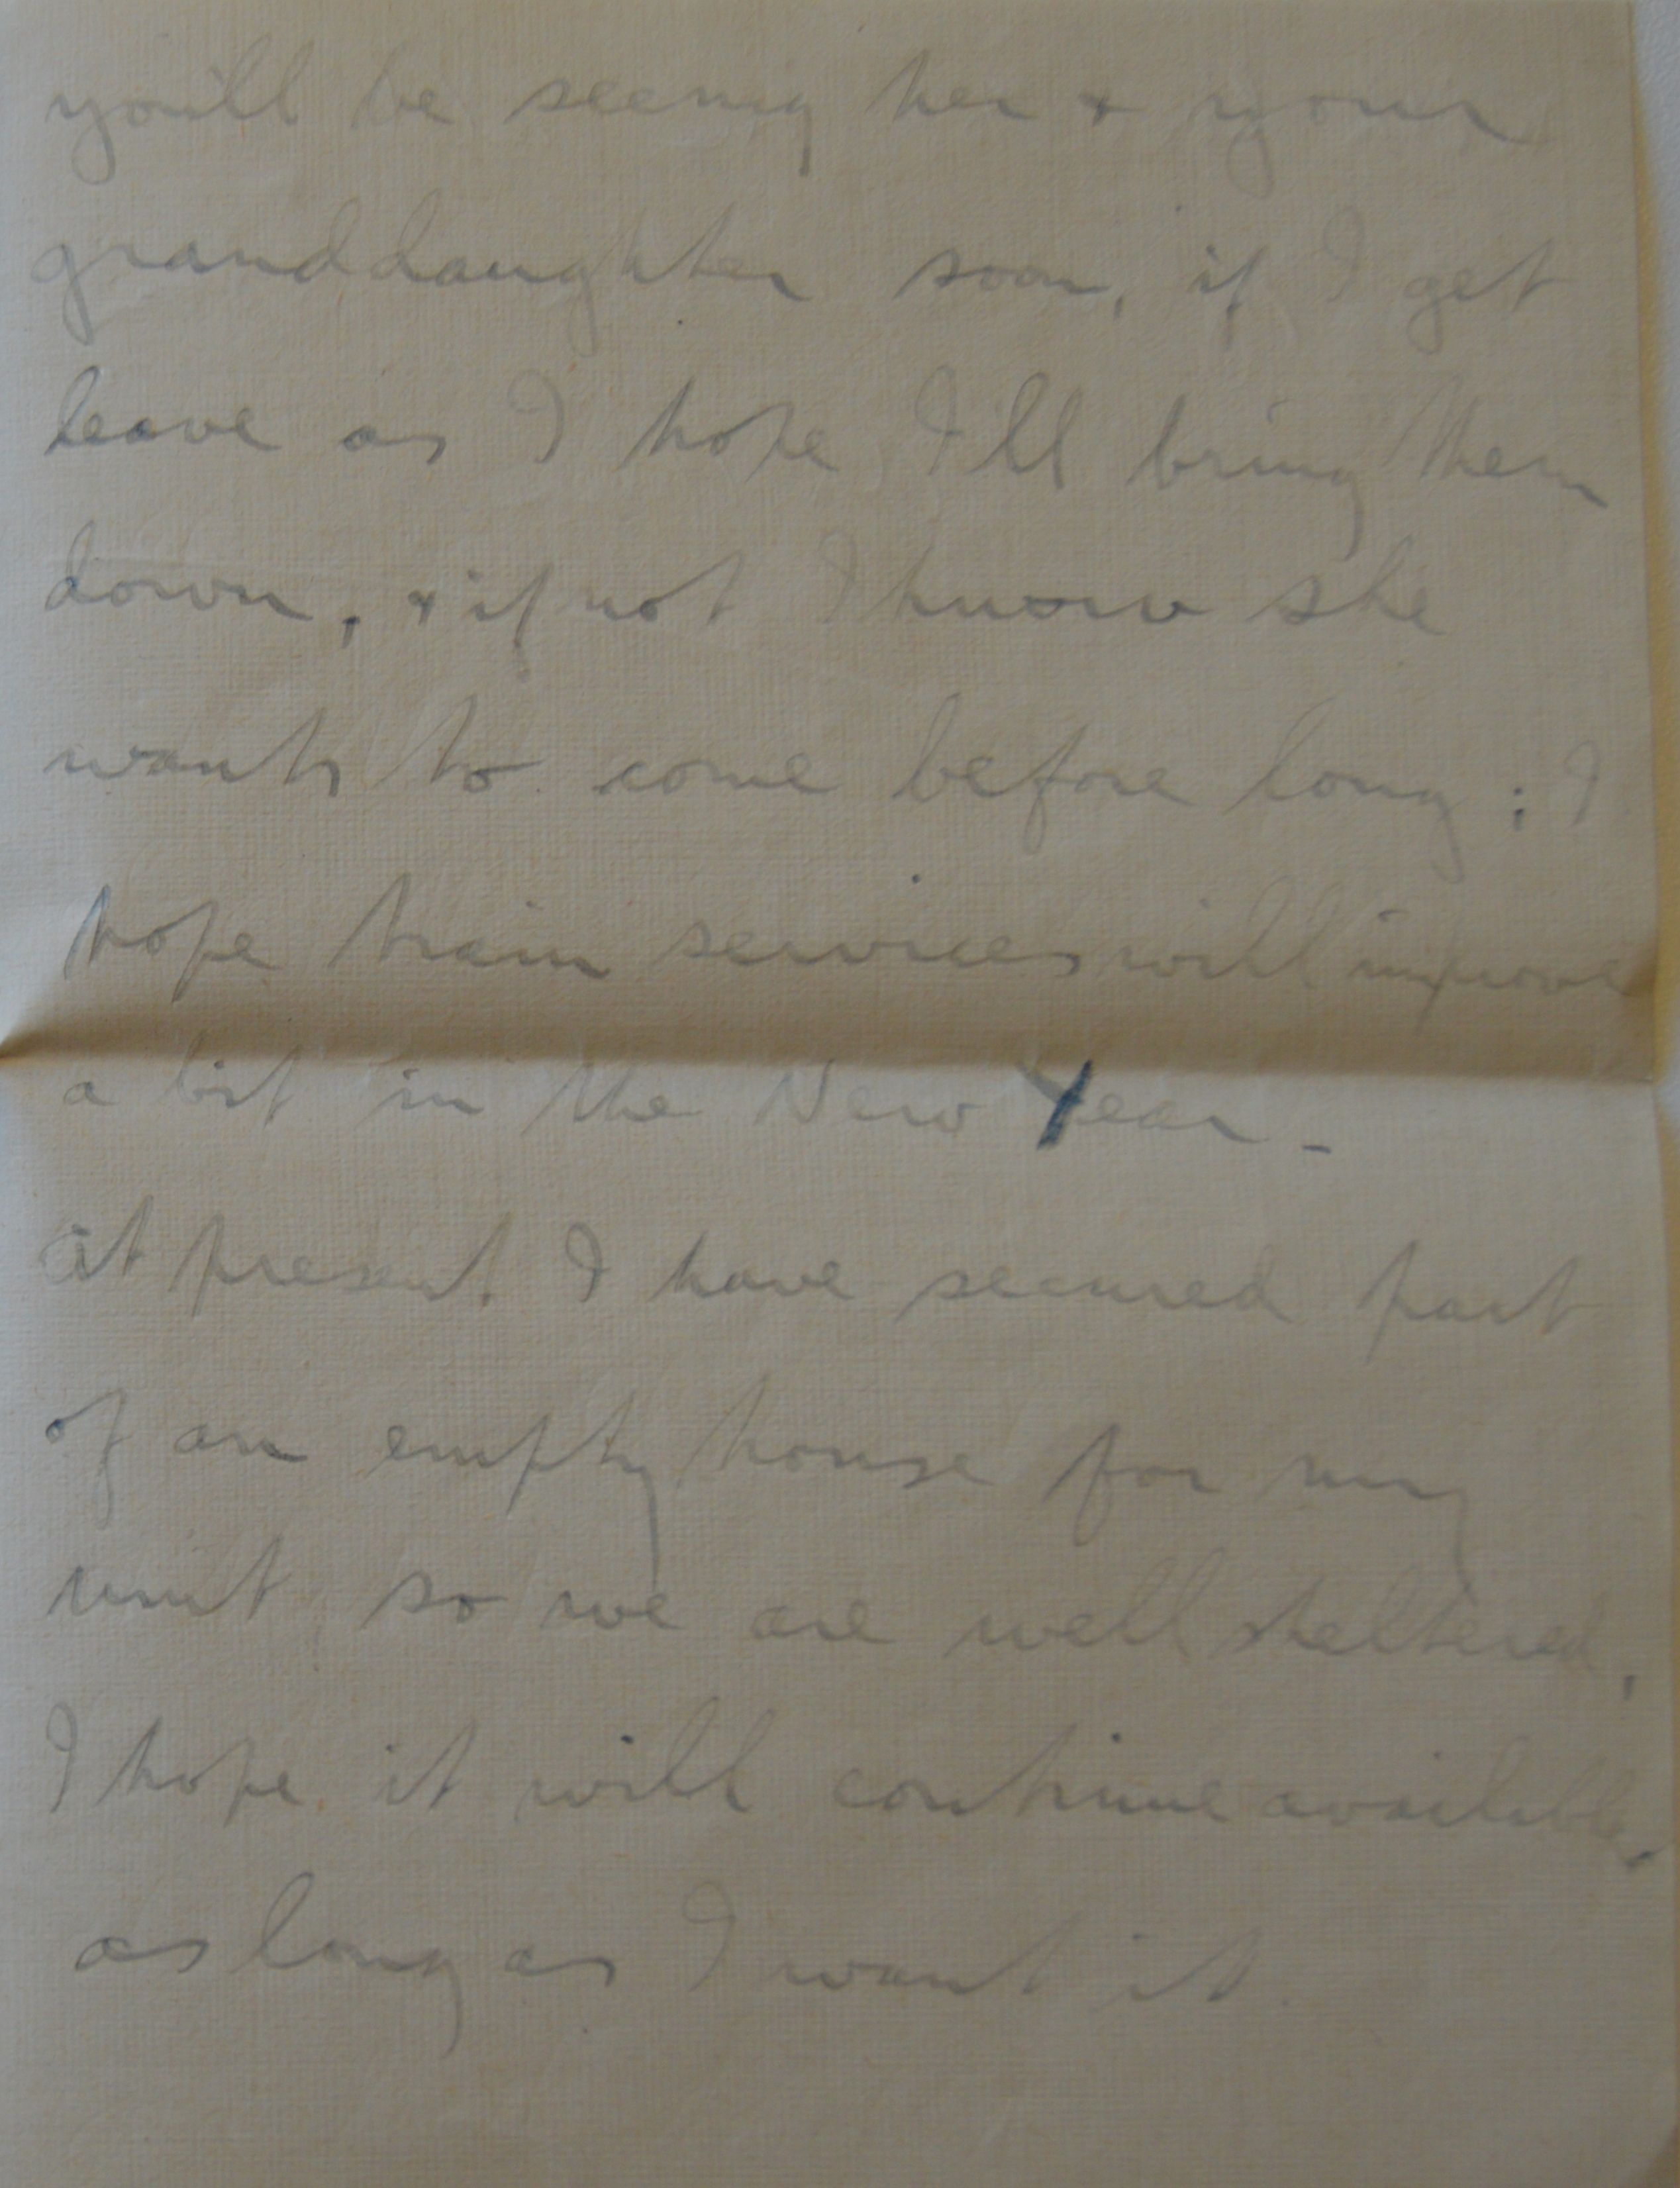 you'll be seeing her & your
granddaughter soon, if I get
leave as I hope I'll bring them
down, & if not I know she
wants to come before long; I
hope train services will improve
a bit in the New Year -
at present I have secured part
of an empty house for my
unit, so we are well sheltered,
I hope it will continue available,
as long as I want it.